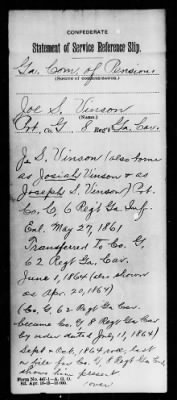 CONFEDERATE
Statement of Service Reference Slip.
Ga. Com. of Pensions
(Source of communication.)
Joe S. Vinson
(Name.)
Pvt. Co. G 8 Reg't Ga. Cav.
Jo. S. Vinson (also borne
as Josiah Vinson & as
Joseph S. Vinson) Pvt.
Co. C, 6 Reg't Ga. Inf.
Enl. May 27, 1861
Transferred to Co. G,
62 Reg't Ga. Cav.
June 1, 1864 (also shown
as Apr. 20, 1864)
(Co. G, 62 Reg't Ga Cav.
became Co. G, 8 Reg't Ga Cav
by order dated July 11, 1864)
Sept & Oct, 1864 roll, last
on file for Co. G, 8 Reg't Ga Cav,
shows him present
over
Form No. 647-1—A. G. O.